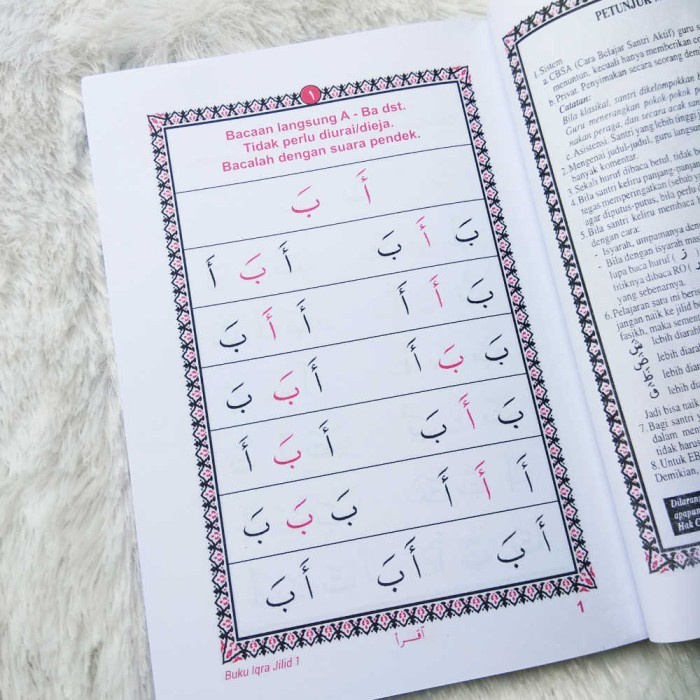 ١
Bacaan langsung A - Ba dst.
Tidak perlu diurai/dieja.
Bacalah dengan suara pendek.
أَ بَ
بَ أَ بَ أَ بَ أَ
بَ أَ أَ أَ أَ بَ
بَ بَ أَ أَ بَ بَ
بَ أَ بَ أَ بَ أَ
أَ أَ أَ بَ بَ بَ
أَ بَ أَ بَ أَ بَ
1
اقرأ
Buku Iqra Jilid 1
PETUNJUK
1. Sistem
a. CBSA (Cara Belajar Santri Aktif) guru
menuntun, kecuali hanya memberikan
b. Privat. Penyimakan secara seorang
Catatan:
Bila klasikal, santri dikelompokkan
Guru menerangkan pokok-pokok
nakan peraga, dan secara acak
c. Asistensi. Santri yang lebih tinggi
2. Mengenai judul-judul, guru langsung
banyak komentar.
3. Sekali huruf dibaca betul, tidak
4. Bila santri keliru panjang-panjang
tegas memperingatkan (sebab
agar diputus-putus, bila perlu
5. Bila santri keliru membaca
dengan cara:
- Isyarah, umpamanya
- Bila dengan isyarah
lupa baca huruf ( ز
titiknya dibaca RO (
yang sebenarnya.
6. Pelajaran satu
jangan naik ke jilid
fasikh, maka
lebih diarah
lebih diarah
lebih diar
lebih
Jadi bisa naik
7. Bagi santri
dalam
tidak harus
8. Untuk EB
Demikian,
Dilarang
apapun
Hak